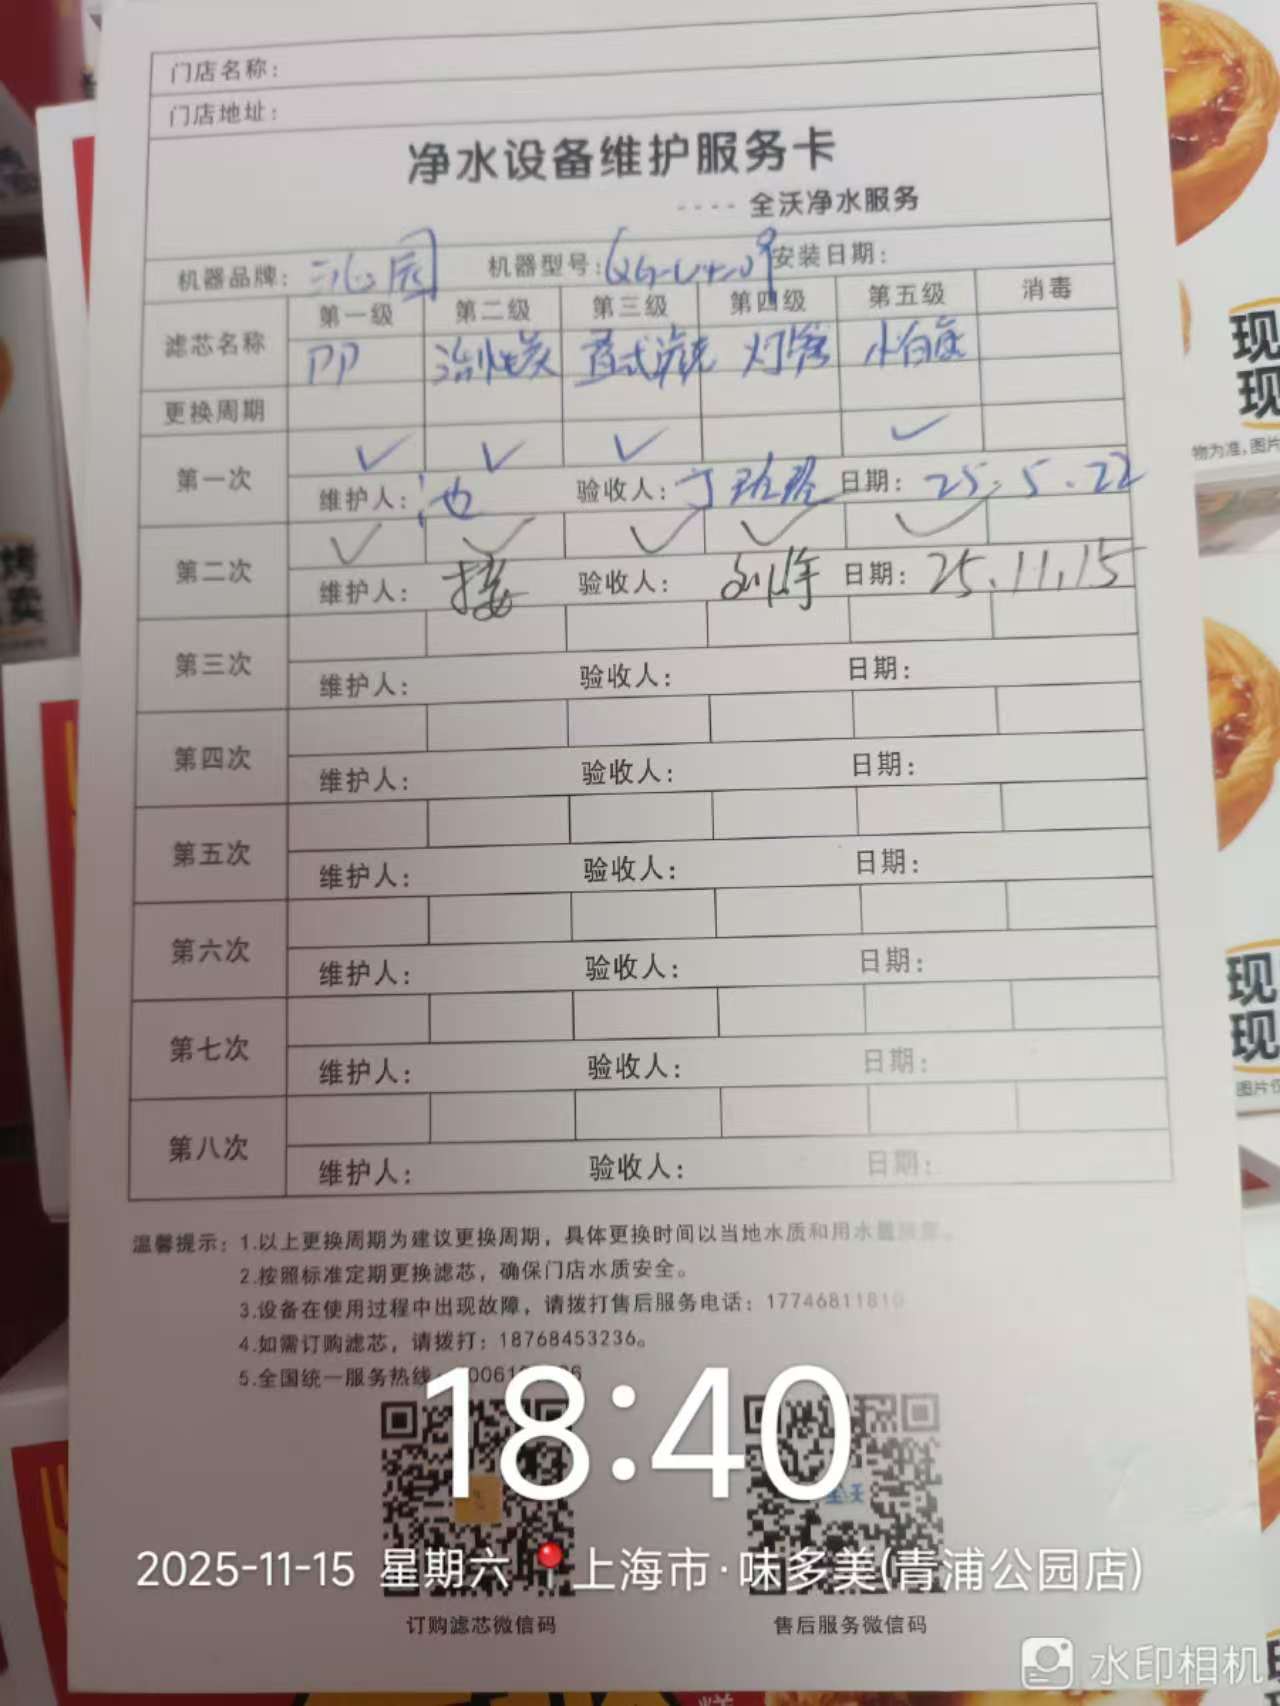 门店名称：
门店地址：
净水设备维护服务卡
---- 全沃净水服务
机器品牌： 机器型号： 安装日期：
滤芯名称 第一级 第二级 第三级 第四级 第五级 消毒
PP 活性炭 直式 灯管 小白
更换周期
第一次 ✓ ✓ ✓ ✓
维护人：池 验收人：丁 日期：25.5.22
第二次 ✓ ✓ ✓ ✓ ✓
维护人： 验收人：刘 日期：25.11.15
第三次
维护人： 验收人： 日期：
第四次
维护人： 验收人： 日期：
第五次
维护人： 验收人： 日期：
第六次
维护人： 验收人： 日期：
第七次
维护人： 验收人： 日期：
第八次
维护人： 验收人： 日期：
温馨提示：1.以上更换周期为建议更换周期，具体更换时间以当地水质和用水量
2.按照标准定期更换滤芯，确保门店水质安全。
3.设备在使用过程中出现故障，请拨打售后服务电话：17746811810
4.如需订购滤芯，请拨打：18768453236。
5.全国统一服务热线
18:40
2025-11-15 星期六 上海市·味多美(青浦公园店)
订购滤芯微信码 售后服务微信码
水印相机
现
现
物为准，图片
现
现
图片仅
烤
卖